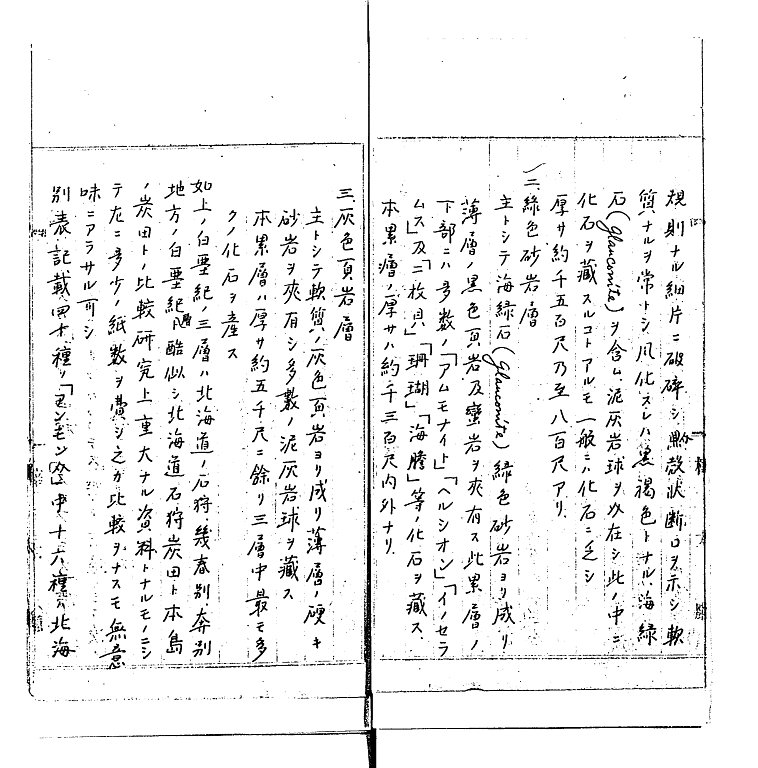 規則ナル細片ニ破碎シ黙殻狀断口ヲ示シ軟
質ナルヲ常トシ風化スレハ黒褐色トナル、海緑
石(glauconite)ヲ含ム、泥灰岩球ヲ次在シ此ノ中ニ
化石ヲ藏スルコトアルモ一般ニハ化石ニ乏シ
厚サ約千五百尺乃至八百尺アリ
二、緑色砂岩層
主トシテ海緑石(glauconite)緑色砂岩ヨリ成リ
薄層ノ黒色頁岩及蠻岩ヲ夾有ス此累層ノ
下部ニハ多數ノ「アムモナイト」「ヘルシオン」「イノセラ
ムス」及「二枚貝」「珊瑚」「海膽」等ノ化石ヲ藏ス
本累層ノ厚サハ約二千三百尺内外ナリ
三、灰色頁岩層
主トシテ軟質ノ灰色頁岩ヨリ成リ薄層ノ硬キ
砂岩ヲ夾有シ多數ノ泥灰岩球ヲ藏ス
本累層ハ厚サ約五千尺ニ餘リ三層中最モ多
クノ化石ヲ産ス
如上ノ白堊紀ノ三層ハ北海道ノ石狩幾春別奔別
地方ノ白堊紀層ニ酷似シ北海道石狩炭田ト本島
ノ炭田トノ比較研究上重大ナル資料トナルモノニシ
テ左ニ多少ノ紙數ヲ費シ之カ比較ヲナスモ無意
味ニアラサル可シ
別表記載四十種ノ「アンモン」介中十六種ハ北海